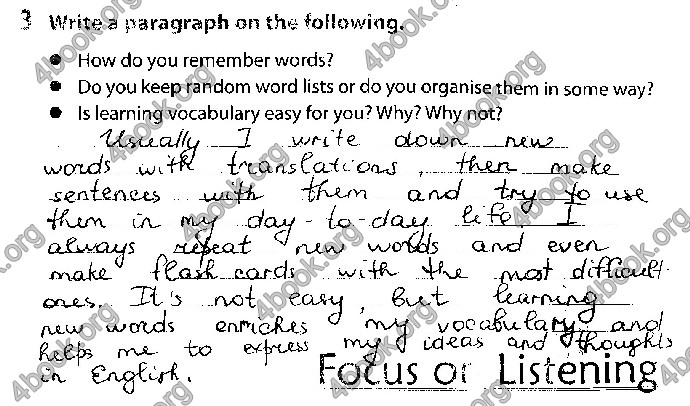 3 Write a paragraph on the following.
• How do you remember words?
• Do you keep random word lists or do you organise them in some way?
• Is learning vocabulary easy for you? Why? Why not?
Usually I write down new
words with translations, then make
sentences with them and try to use
them in my day-to-day life. I
always repeat new words and even
make flash cards with the most difficult
ones. It's not easy, but learning
new words enriches my vocabulary and
helps me to express my ideas and thoughts
in English.
Focus on Listening
4book.org